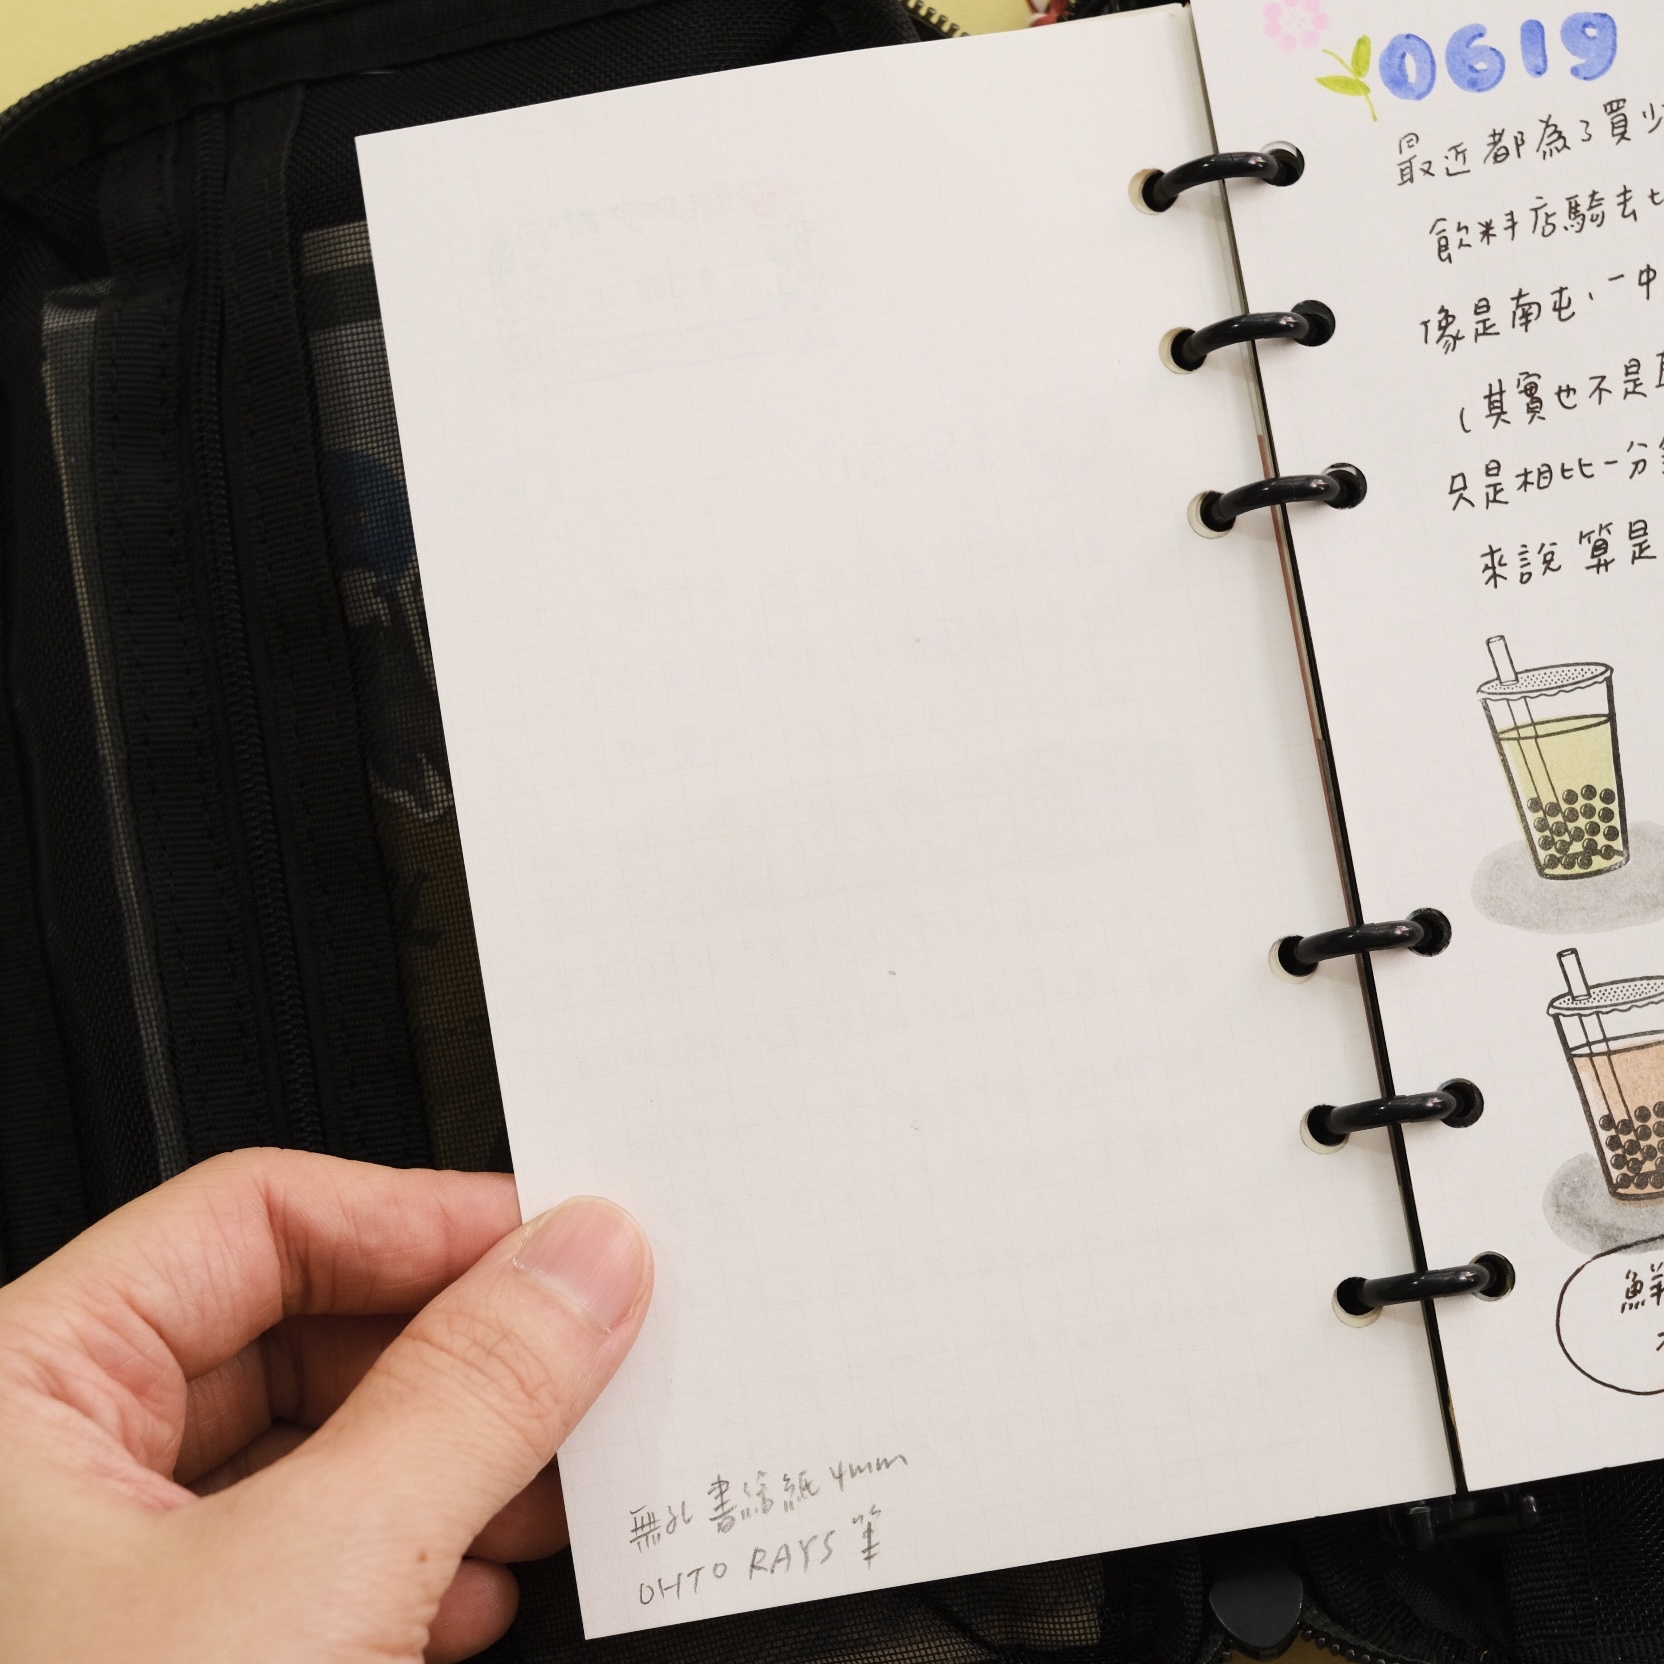 無孔 書繪紙 4mm
OHTO RAYS 筆
0619
最近都為了買少
飲料店騎去七
像是南屯、一中
(其實也不是
只是相比一分
來說 算是
鮮